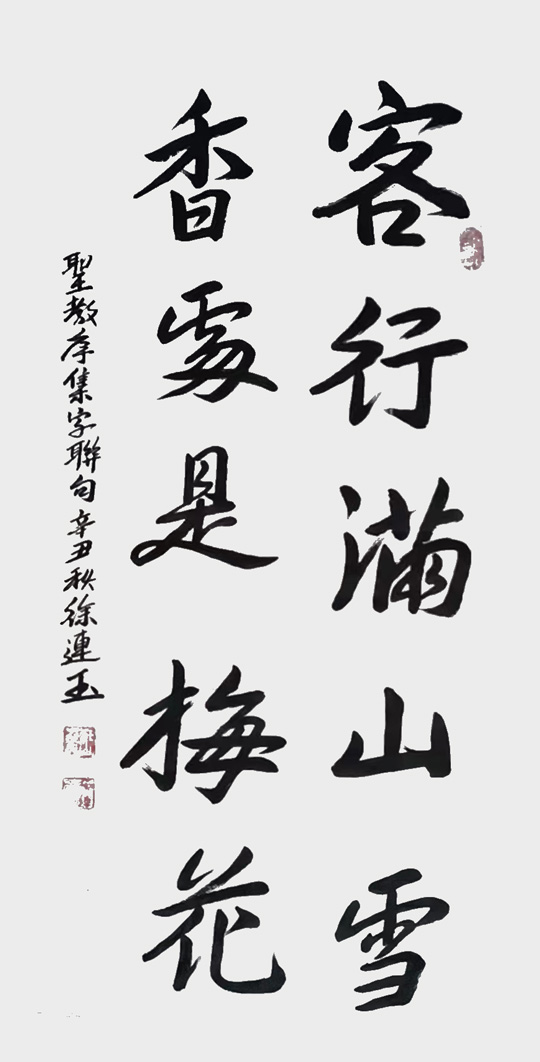 客行滿山雪
香處是梅花
聖教序集字聯句辛丑秋徐連玉